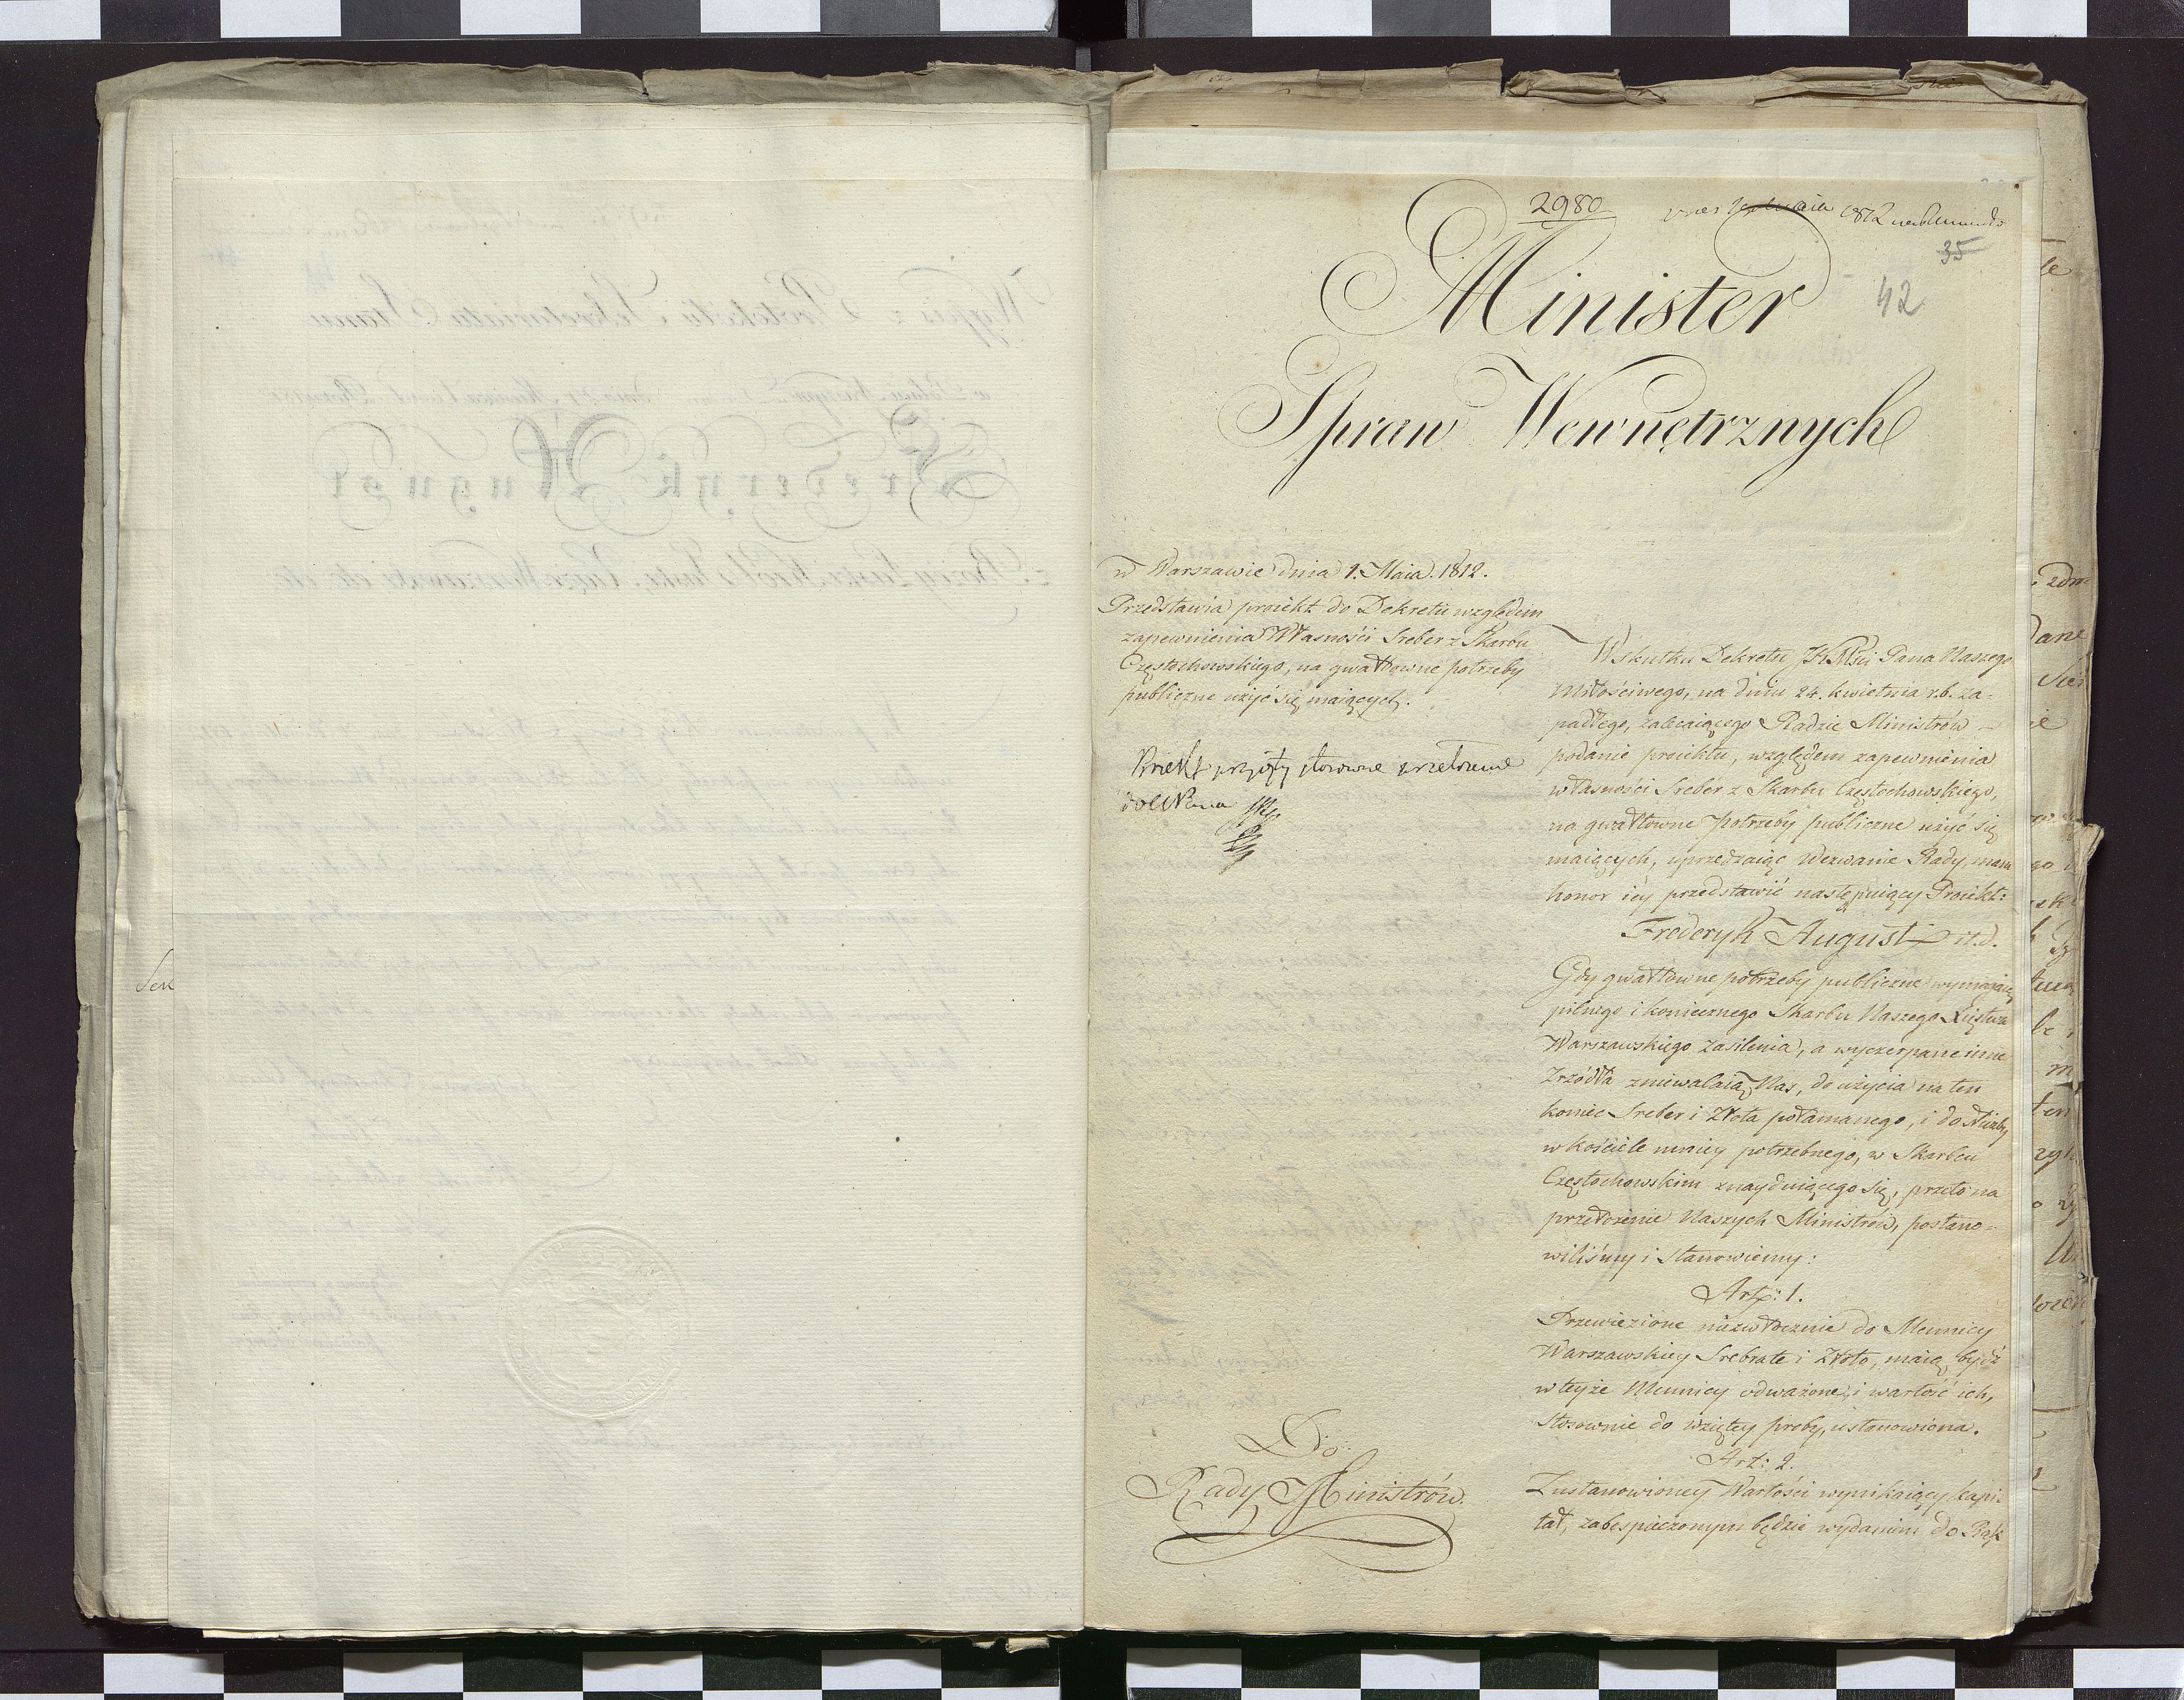 2980
1812
35
42
Minister
Spraw Wewnętrznych
w Warszawie dnia 1. Maia. 1812.
Przedstawia proiekt do Dekretu względem
zapewnienia Własności Sreber z Skarbu
Częstochowskiego, na gwałtowne potrzeby
publiczne użyć się maiących.
Proiekt przyięty
Do
Rady Ministrów.
W skutku Dekretu JKMści Pana Naszego
Miłościwego, na dniu 24. kwietnia r.b. za-
padłego, zalecaiącego Radzie Ministrów
podanie proiektu, względem zapewnienia
własności Sreber z Skarbu Częstochowskiego,
na gwałtowne potrzeby publiczne użyć się
maiących, uprzedzaiąc Wezwanie Rady, mam
honor iey przedstawić następuiący Proiekt:
Frederyk August it.d.
Gdy gwałtowne potrzeby publiczne wymagaią
pilnego i koniecznego Skarbu Naszego Xięstwa
Warszawskiego zasilenia, a wyczerpane inne
Zrzódła zniewalaią Nas, do użycia na ten
koniec Sreber i Złota połamanego, i do służby
w kościele mniey potrzebnego, w Skarbcu
Częstochowskim znayduiącego się, przeto na
przełożenie Naszych Ministrów, postano-
wiliśmy i stanowiemy:
Art: 1.
Przewiezione niezwłocznie do Mennicy
Warszawskiey Srebra te i Złoto, maią bydź
w teyże Mennicy odważone, i wartość ich,
stosownie do wziętey proby, ustanowiona.
Art: 2.
Z ustanowioney Wartości wynikaiący kapi-
tał, zabespieczonym będzie wydaniem do Rąk